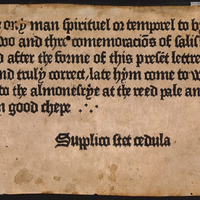 ony man spirituel or temporel to by
two and thre comemoracios of salis
d after the forme of this preset lettre
nd truly correct, late hym come to w
to the almonesrye at the reed pale an
n good chepe
Supplico stet cedula